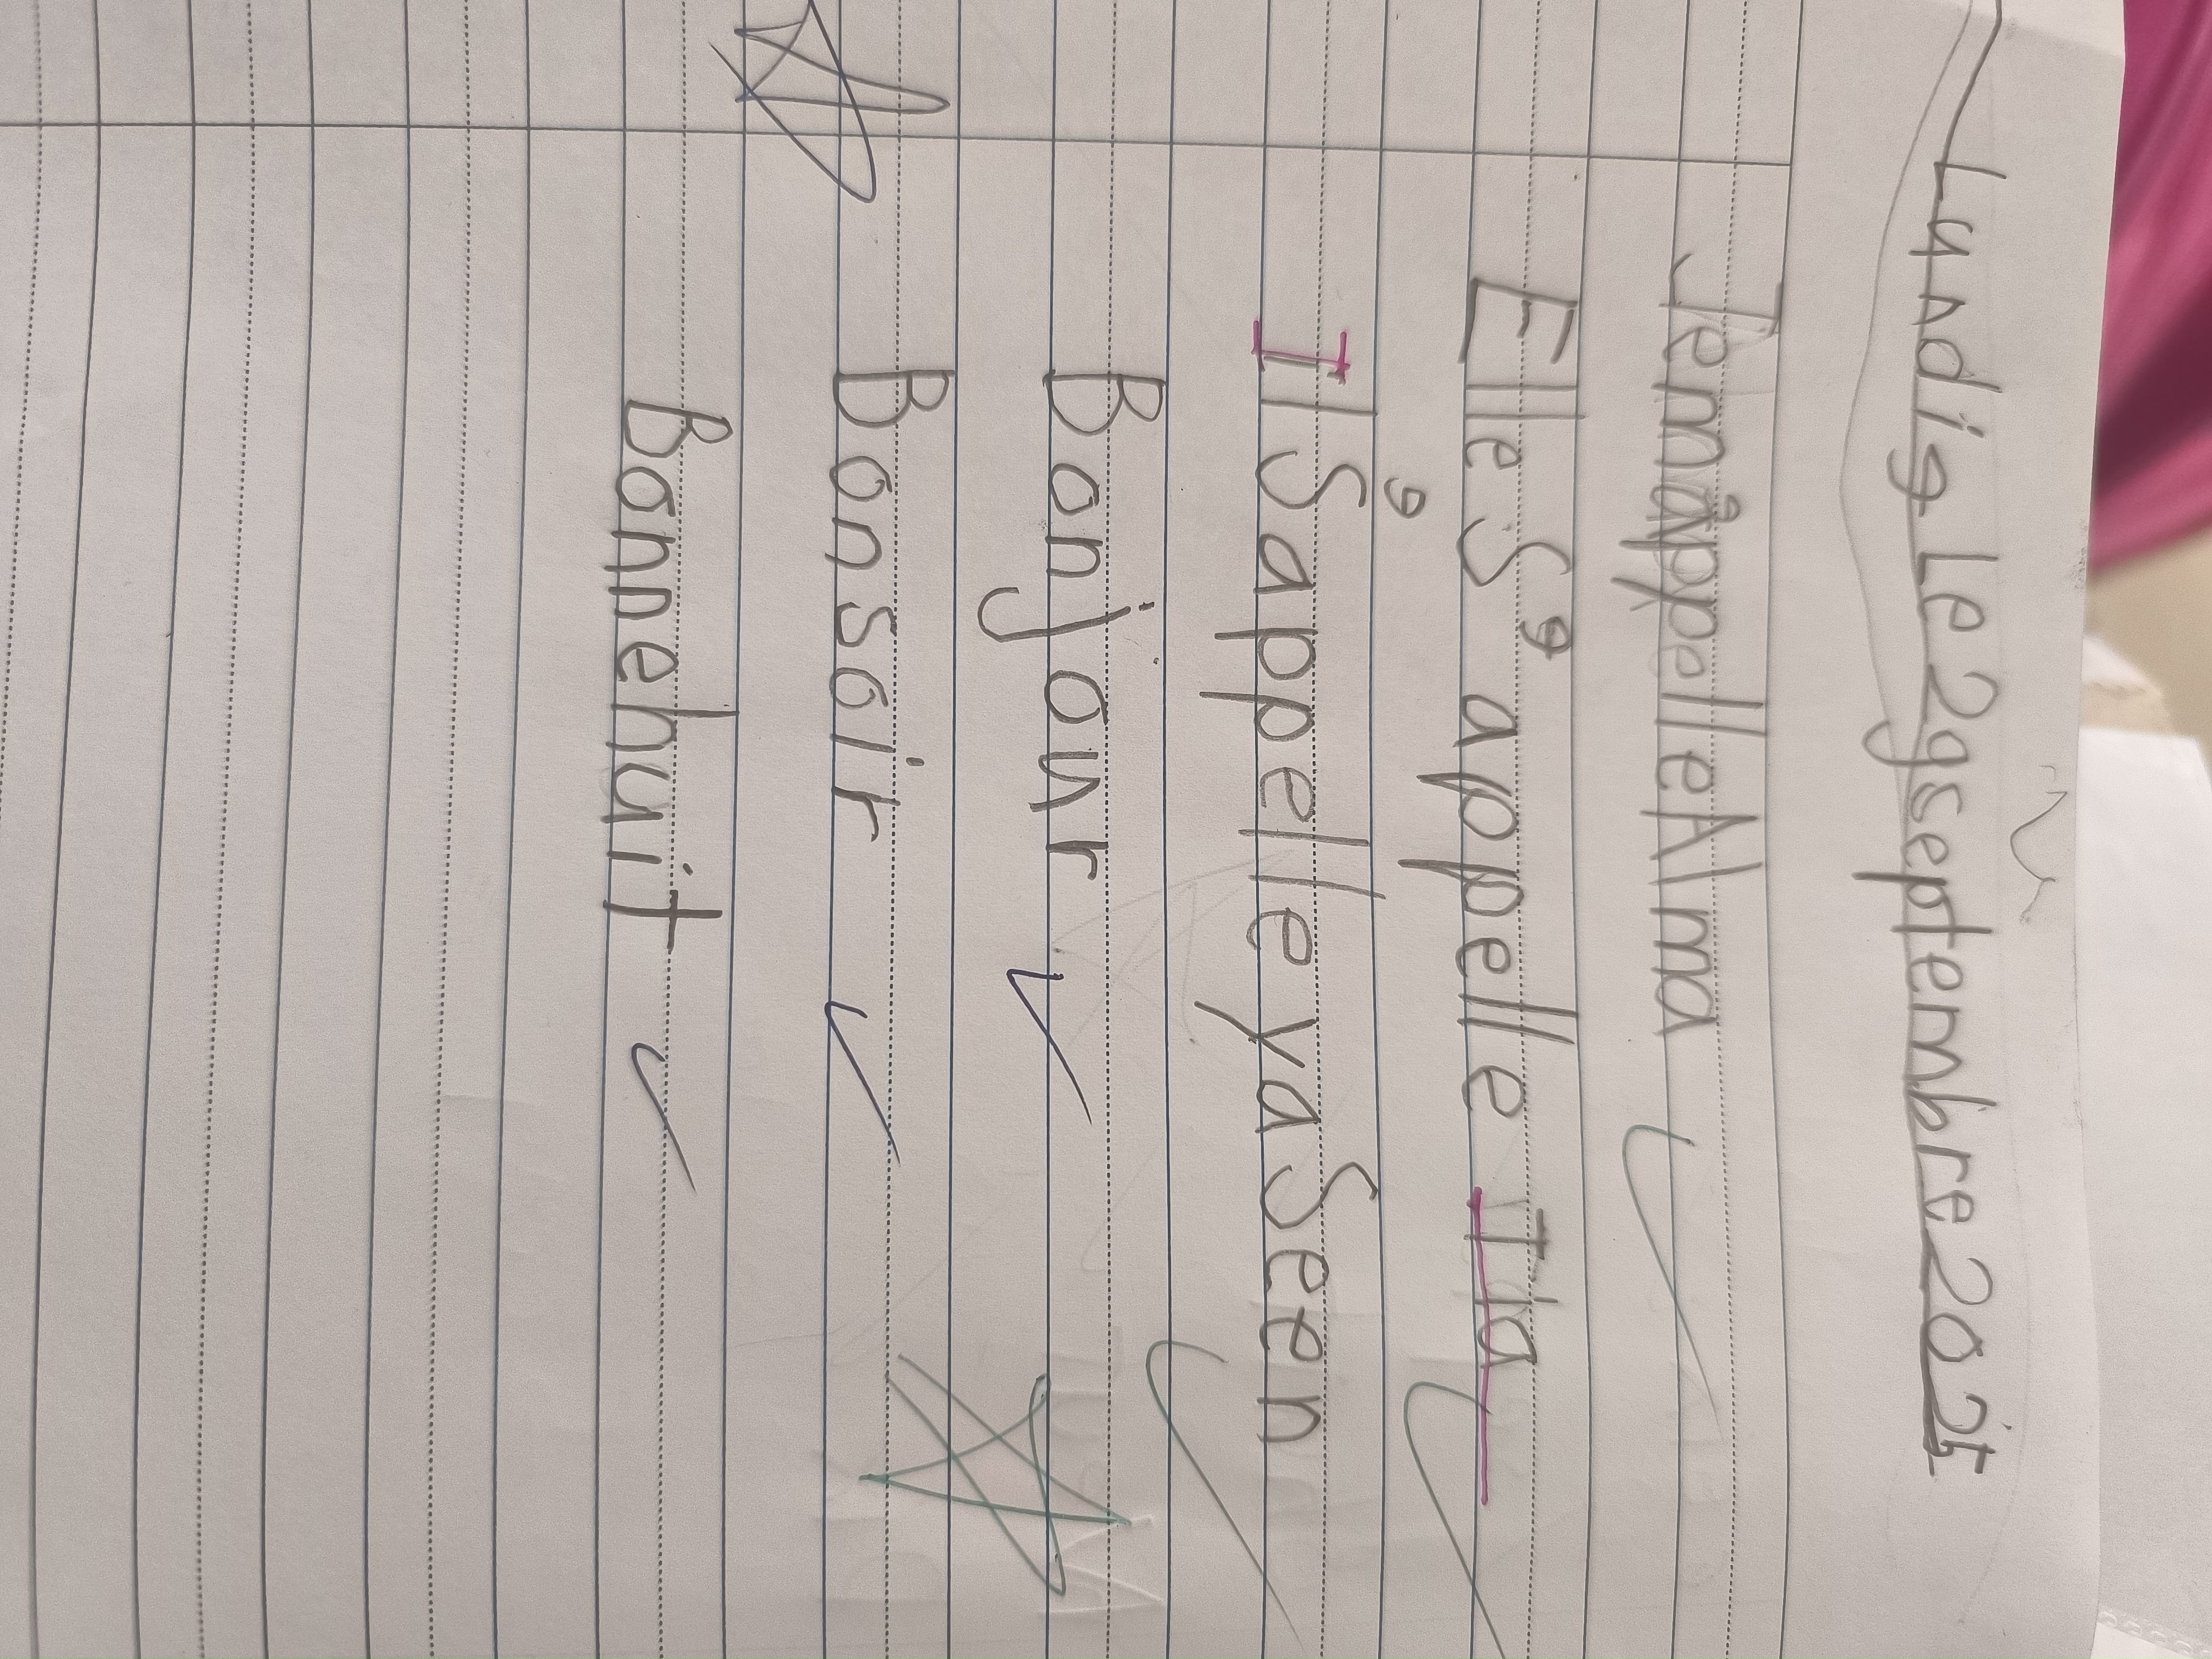 Lundi9 Le 29septembre2025
Jem'appelleAlma
Elle S'appelle Ida
Il S'appelle yaSeen
Bonjour
Bonsoir
Bonnehuit